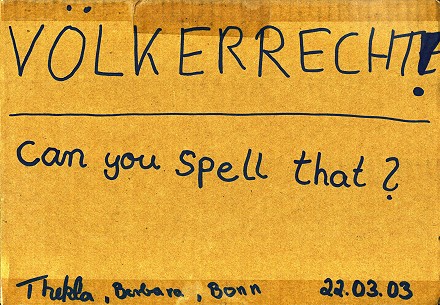 VÖLKERRECHT!
Can you spell that?
Thekla, Barbara, Bonn 22.03.03